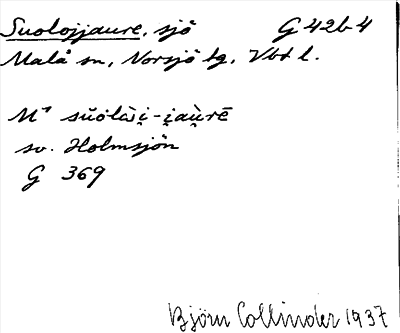 Suolojjaure, sjö G 42b4
Malå sn, Norsjö tg, Vbt l.
sv. Holmsjön
G 369
Björn Collinder 1937